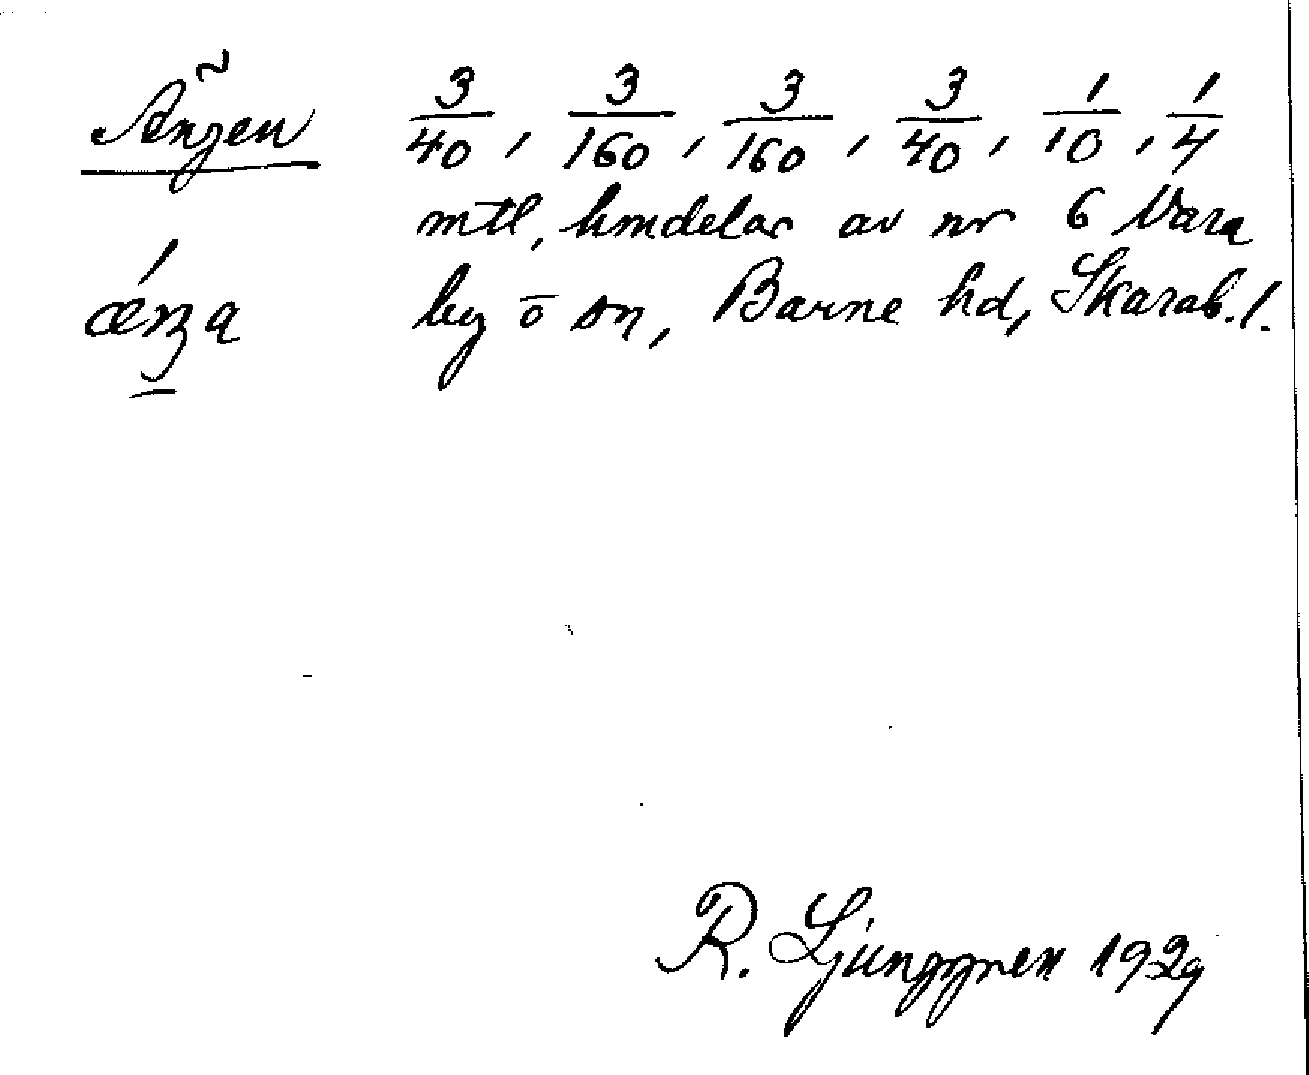 Änzen 3/40, 3/160, 3/160, 3/40, 1/10, 1/4
mtl, hmdelar av nr 6 Vara
by o sn, Barne hd, Skarab. l.
R. Ljunggren 1929